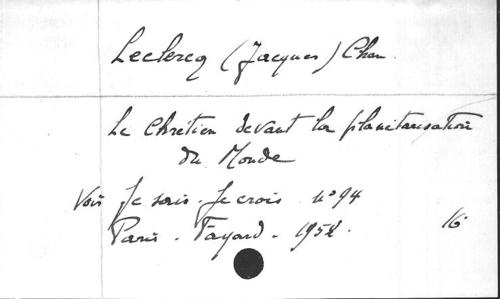 Leclercq (Jacques) Chan.
Le Chrétien devant la planétarisation
du Monde
Voir Je sais - Je crois n° 94
Paris - Fayard - 1958. 16